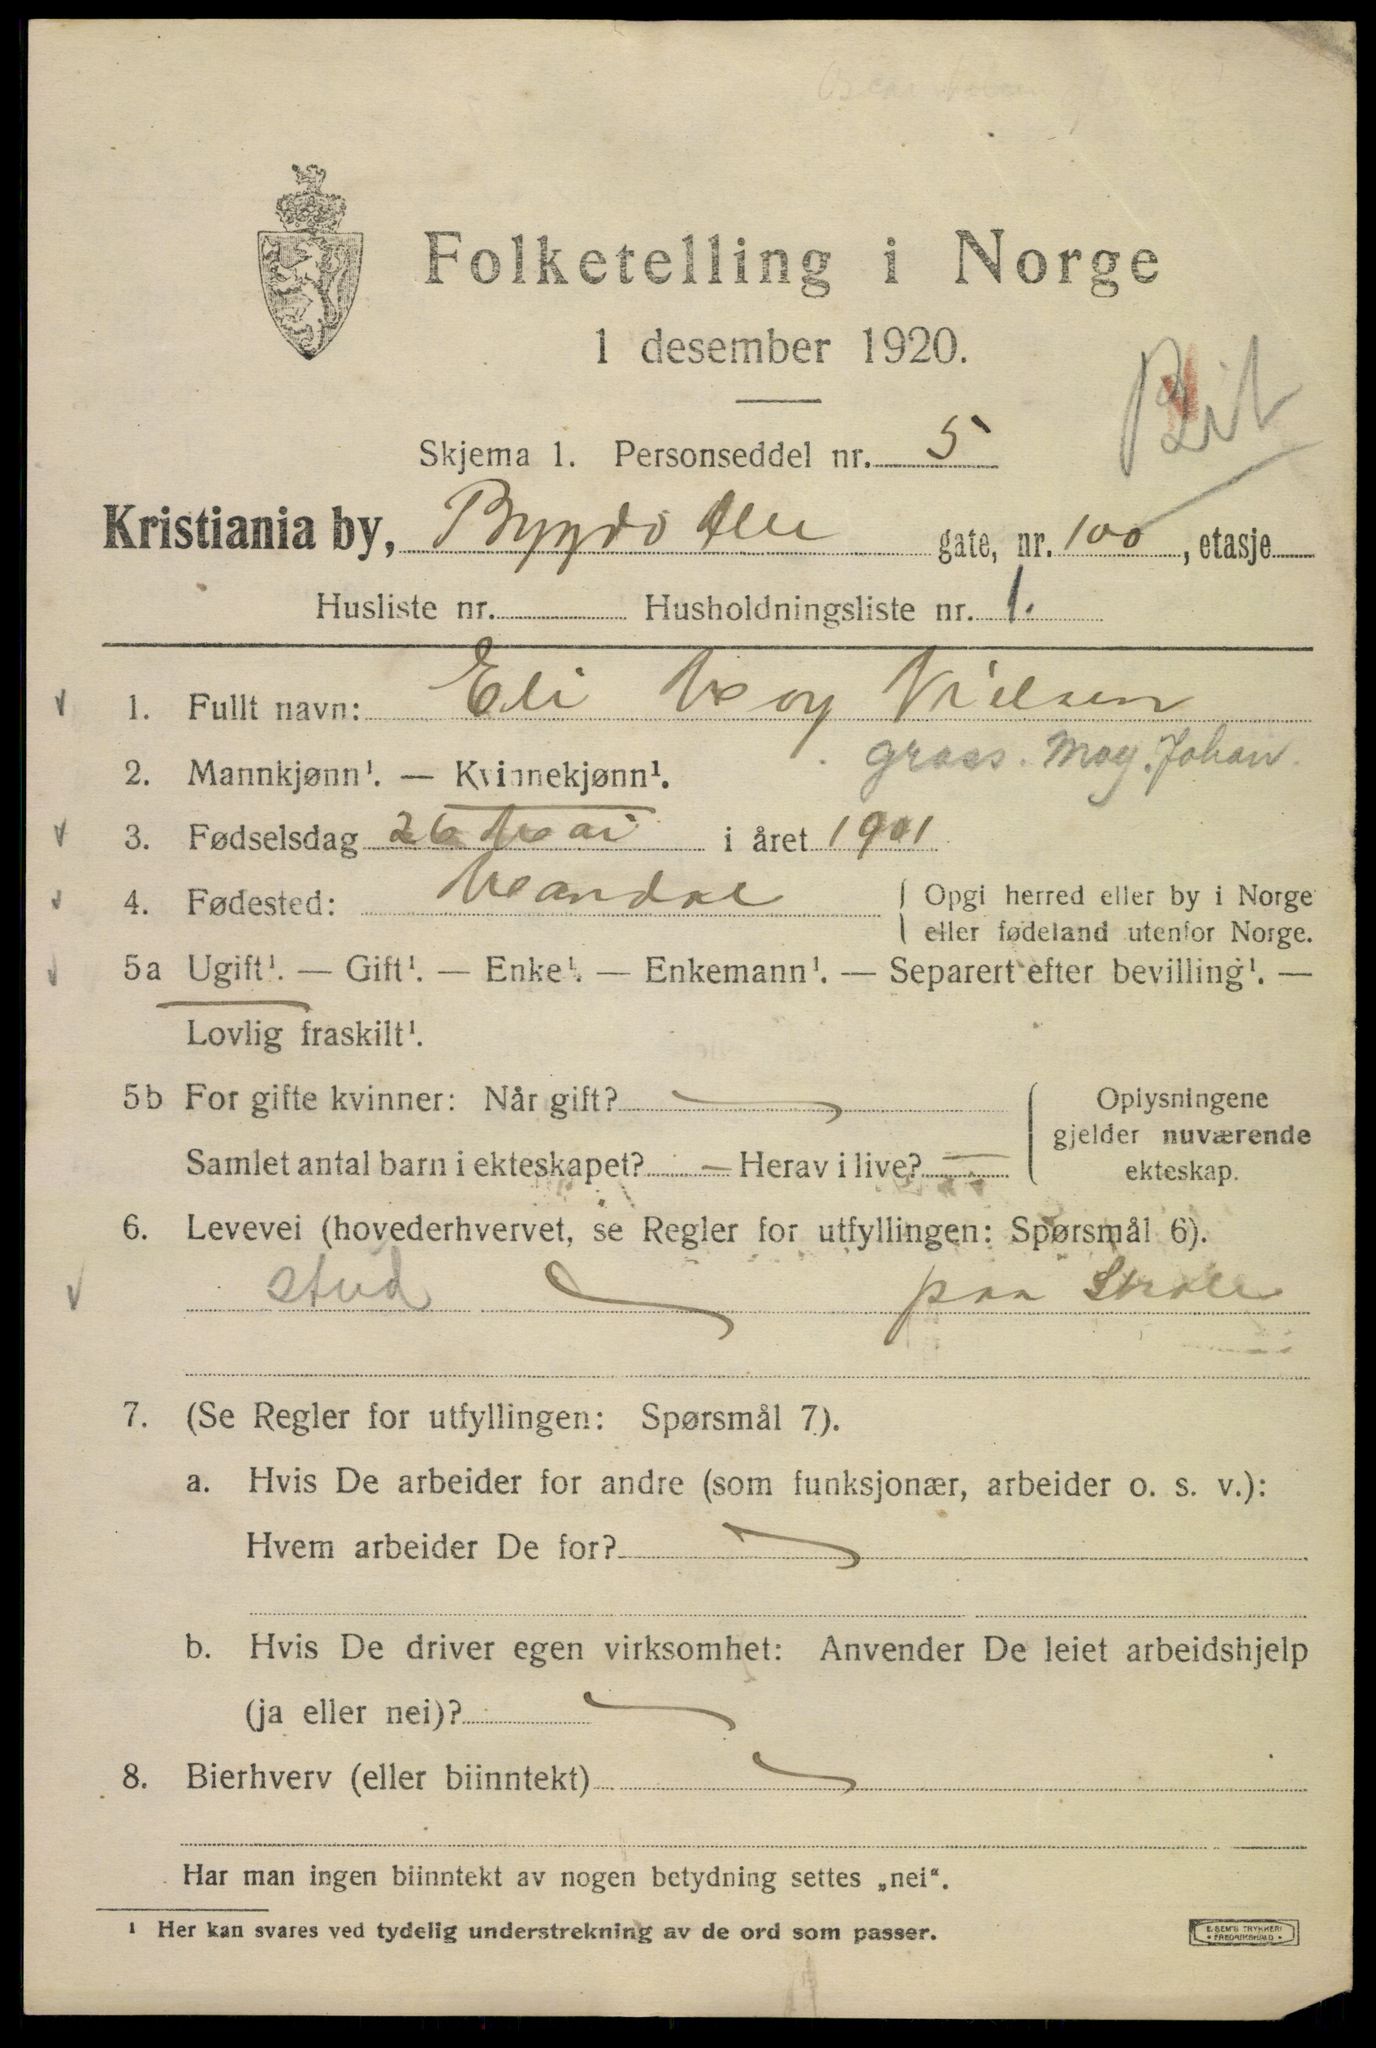 Folketelling i Norge
1 desember 1920.
Skjema 1. Personseddel nr. 5
Kristiania by, Bygdö Alle gate, nr. 100, etasje
Husliste nr. Husholdningsliste nr. 1.
1. Fullt navn: Eli Moy Nielsen
gross. Moy. Johan
2. Mannkjønn¹. — Kvinnekjønn¹.
3. Fødselsdag 26 Mai i året 1901
4. Fødested: Mandal
Opgi herred eller by i Norge
eller fødeland utenfor Norge.
5a Ugift¹. — Gift¹. — Enke¹. — Enkemann¹. — Separert efter bevilling¹. —
Lovlig fraskilt¹.
5b For gifte kvinner: Når gift?
Samlet antal barn i ekteskapet? — Herav i live? —
Oplysningene
gjelder nuværende
ekteskap.
6. Levevei (hovederhvervet, se Regler for utfyllingen: Spørsmål 6).
stud paa Skole
7. (Se Regler for utfyllingen: Spørsmål 7).
a. Hvis De arbeider for andre (som funksjonær, arbeider o. s. v.):
Hvem arbeider De for?
b. Hvis De driver egen virksomhet: Anvender De leiet arbeidshjelp
(ja eller nei)?
8. Bierhverv (eller biinntekt)
Har man ingen biinntekt av nogen betydning settes „nei“.
¹ Her kan svares ved tydelig understrekning av de ord som passer.
E. SEM'S TRYKKERI
• FREDRIKSHALD •